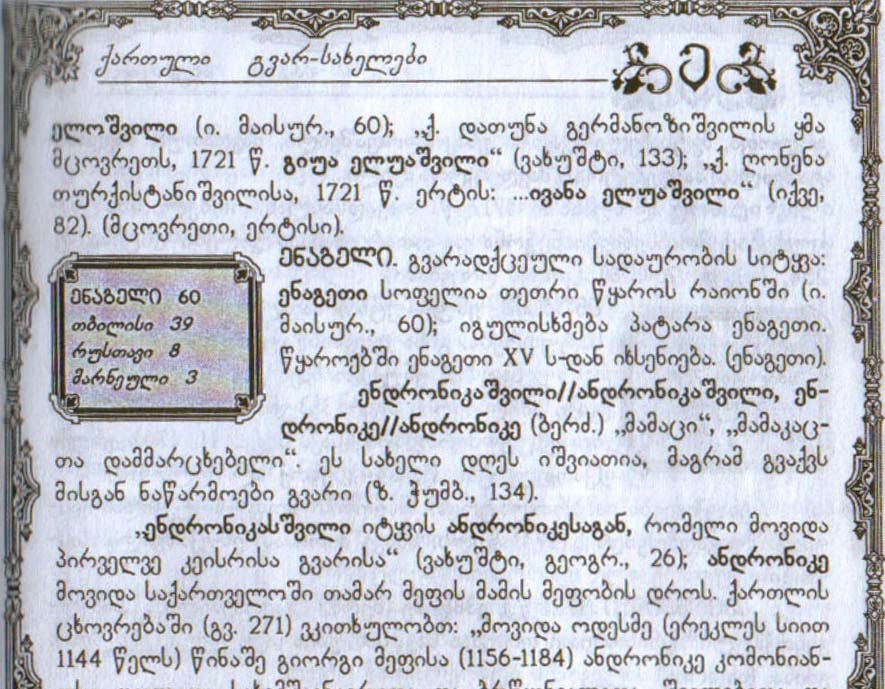 ქართული გვარ-სახელები
ე
ელოშვილი (ი. მაისურ., 60); „ქ. დათუნა გერმანოზიშვილის ყმა
მცოვრეთს, 1721 წ. გიუა ელუაშვილი“ (ვახუშტი, 133); „ქ. ღონენა
თურქისტანიშვილისა, 1721 წ. ერტის: ...ივანა ელუაშვილი“ (იქვე,
82). (მცოვრეთი, ერტისი).
ენაგელი 60
თბილისი 39
რუსთავი 8
მარნეული 3
ენაგელი. გვარადქცეული სადაურობის სიტყვა:
ენაგეთი სოფელია თეთრი წყაროს რაიონში (ი.
მაისურ., 60); იგულისხმება პატარა ენაგეთი.
წყაროებში ენაგეთი XV ს-დან იხსენიება. (ენაგეთი).
ენდრონიკაშვილი//ანდრონიკაშვილი, ენ-
დრონიკე//ანდრონიკე (ბერძ.) „მამაცი“, „მამაკაც-
თა დამმარცხებელი“. ეს სახელი დღეს იშვიათია, მაგრამ გვაქვს
მისგან ნაწარმოები გვარი (ზ. ჭუმბ., 134).
„ენდრონიკასშვილი იტყვის ანდრონიკესაგან, რომელი მოვიდა
პირველვე კეისრისა გვარისა“ (ვახუშტი, გეოგრ., 26); ანდრონიკე
მოვიდა საქართველოში თამარ მეფის მამის მეფობის დროს. ქართლის
ცხოვრებაში (გვ. 271) ვკითხულობთ: „მოვიდა ოდესმე (ერეკლეს სიით
1144 წელს) წინაშე გიორგი მეფისა (1156-1184) ანდრონიკე კომონიან-